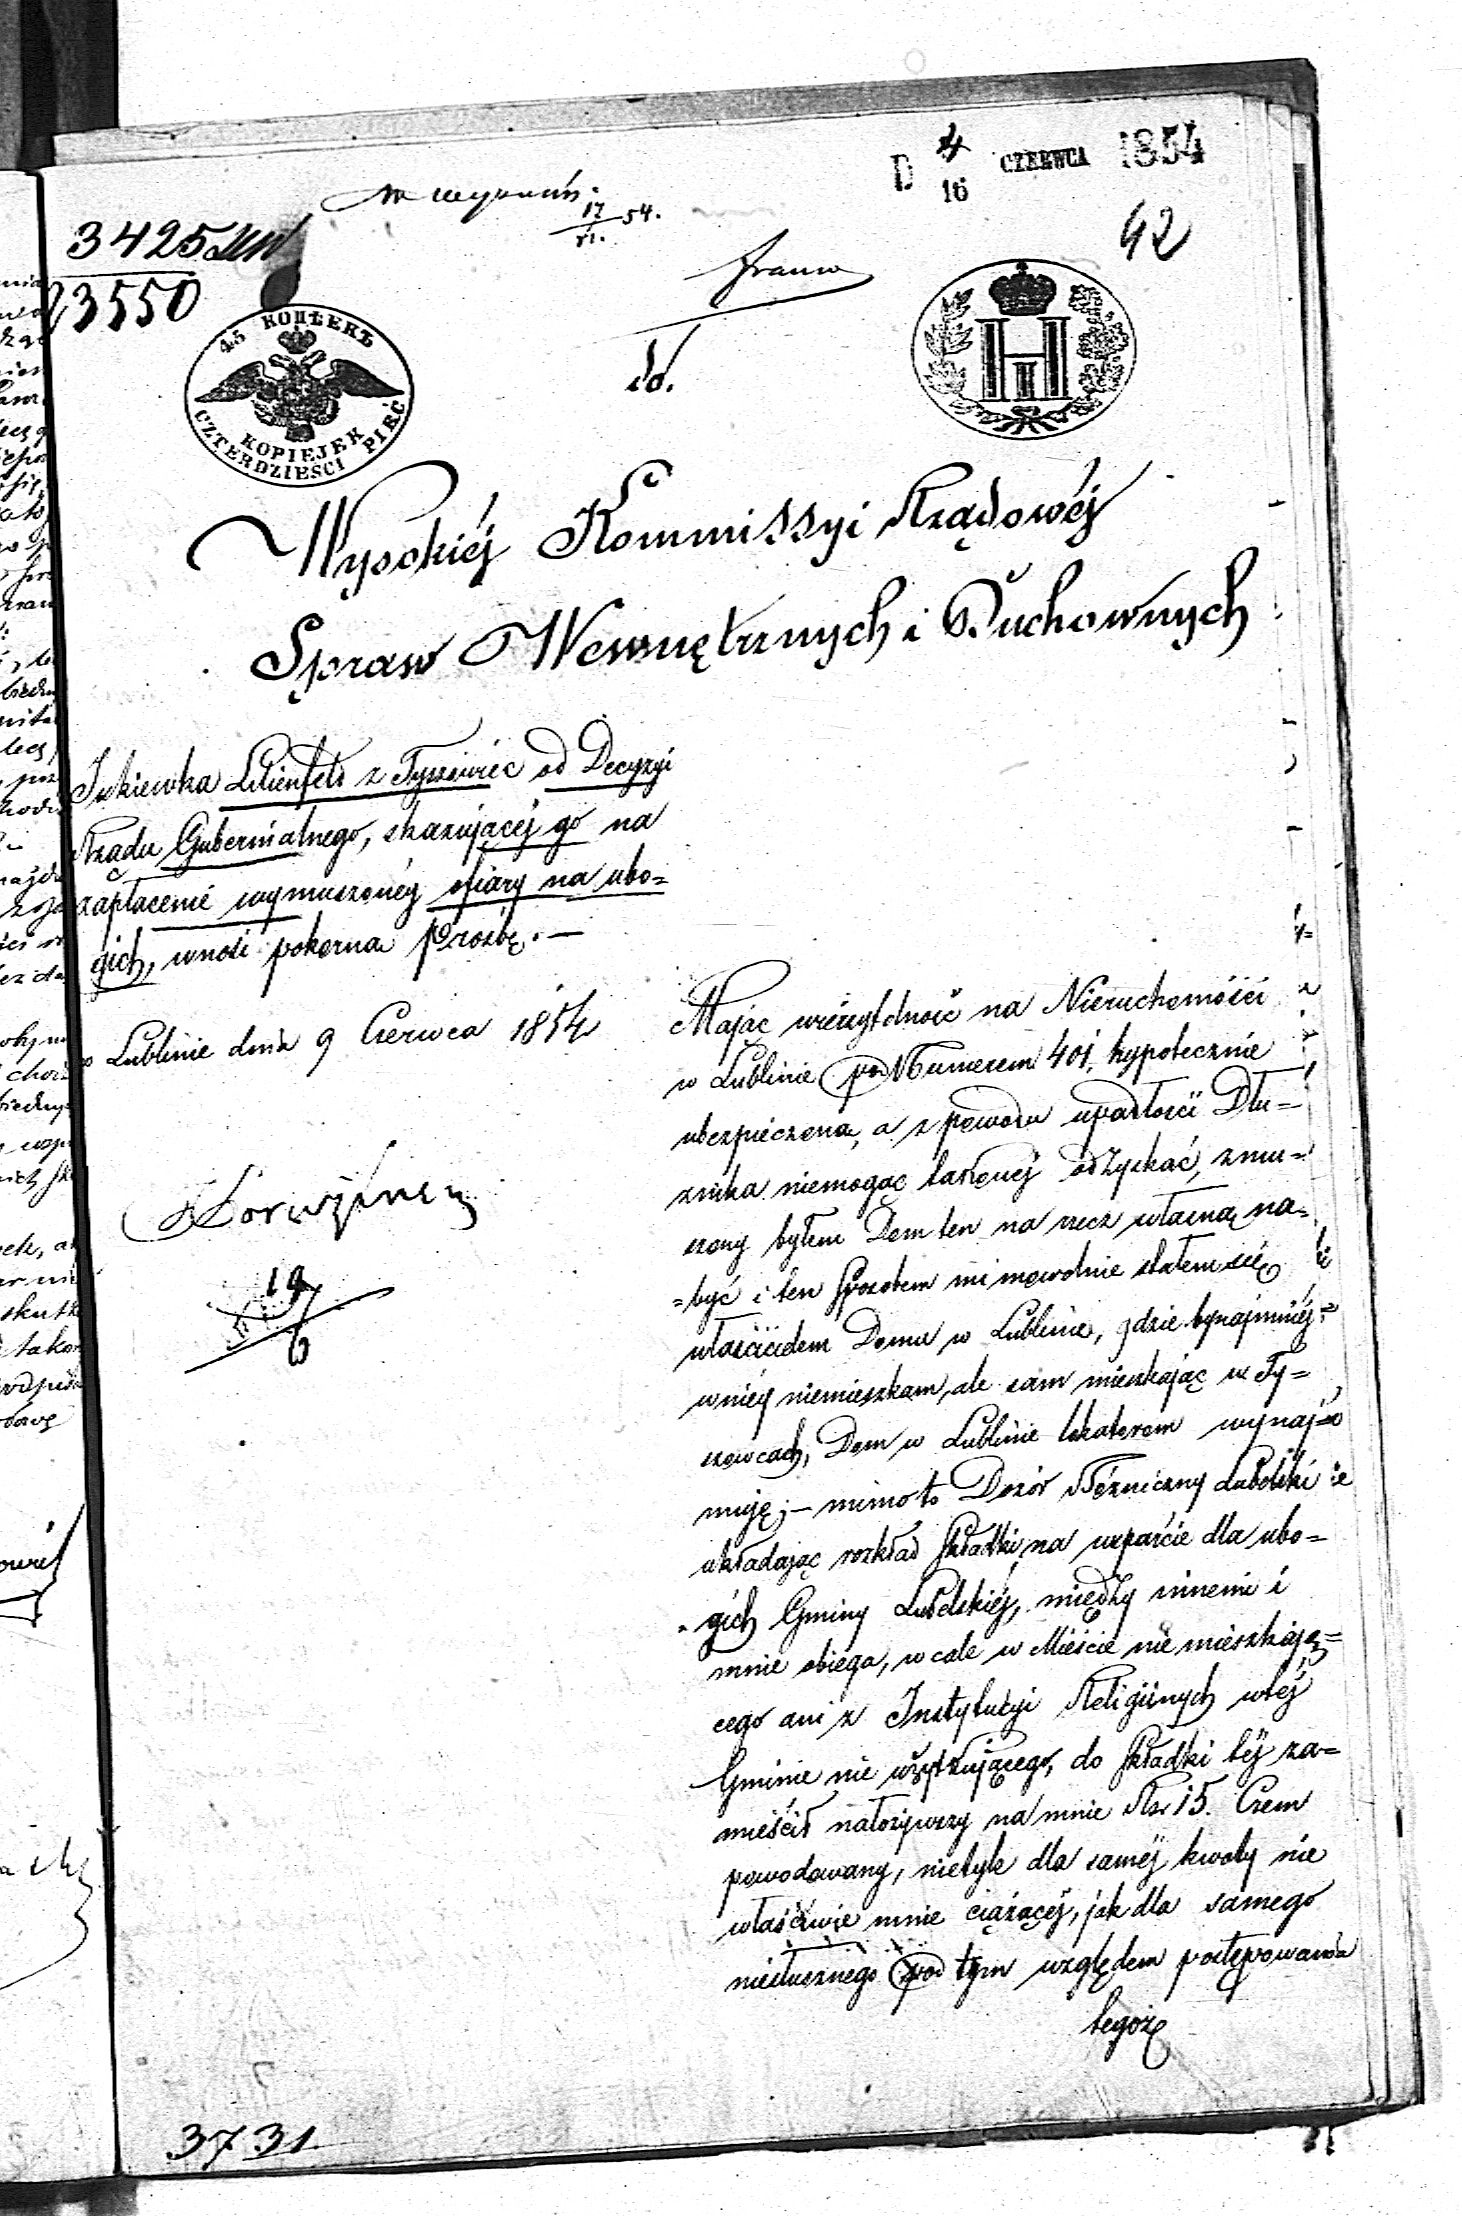 D 4/16 CZERWCA 1854
42
17/VI. 54.
3425
23550
45 КОПѢЕКЪ
KOPIEJEK
CZTERDZIEŚCI PIĘĆ
do.
Wysokiéj Kommissyi Rządowéj
Spraw Wewnętrznych i Duchownych
Lilienfeld z Tyszowiec od Decyzyi
Rządu Gubernialnego, skazującéj go na
zapłacenie wymuszonéy ofiary na ubo=
gich, wnosi pokorna Prośbę. —
w Lublinie dnia 9 Czerwca 1854
Mając wierzytelność na Nieruchomości
w Lublinie pod Numerem 401, hypotecznie
ubezpieczoną, a z powodu upadłości Dłu=
żnika niemogąc takowéj odzyskać, zmu=
szony byłem Dom ten na rzecz własną na=
=być i ten sposobem mimowolnie stałem się
właścicielem Domu w Lublinie, gdzie bynajmniéj
w niéy niemieszkam, ale sam mieszkając w Ty=
szowcach, Dom w Lublinie lokatorom wynaj=
muję; — mimo to Dozór Bóżniczny Lubelski
układając rozkład składki na wsparcie dla ubo=
gich Gminy Lubelskiéj, między innemi i
mnie obiega, wcale w Mieście nie mieszkają=
cego ani z Instytucyi Religijnych w téj
Gminie nie użytkującego, do składki téj za=
mieścił nałożywszy na mnie Rsr 15. Czem
powodowany, nietyle dla saméj kwoty nie
właściwie mnie ciążącéj, jak dla samego
niesłusznego pod tym względem postępowania
tegoż
19/6
3731